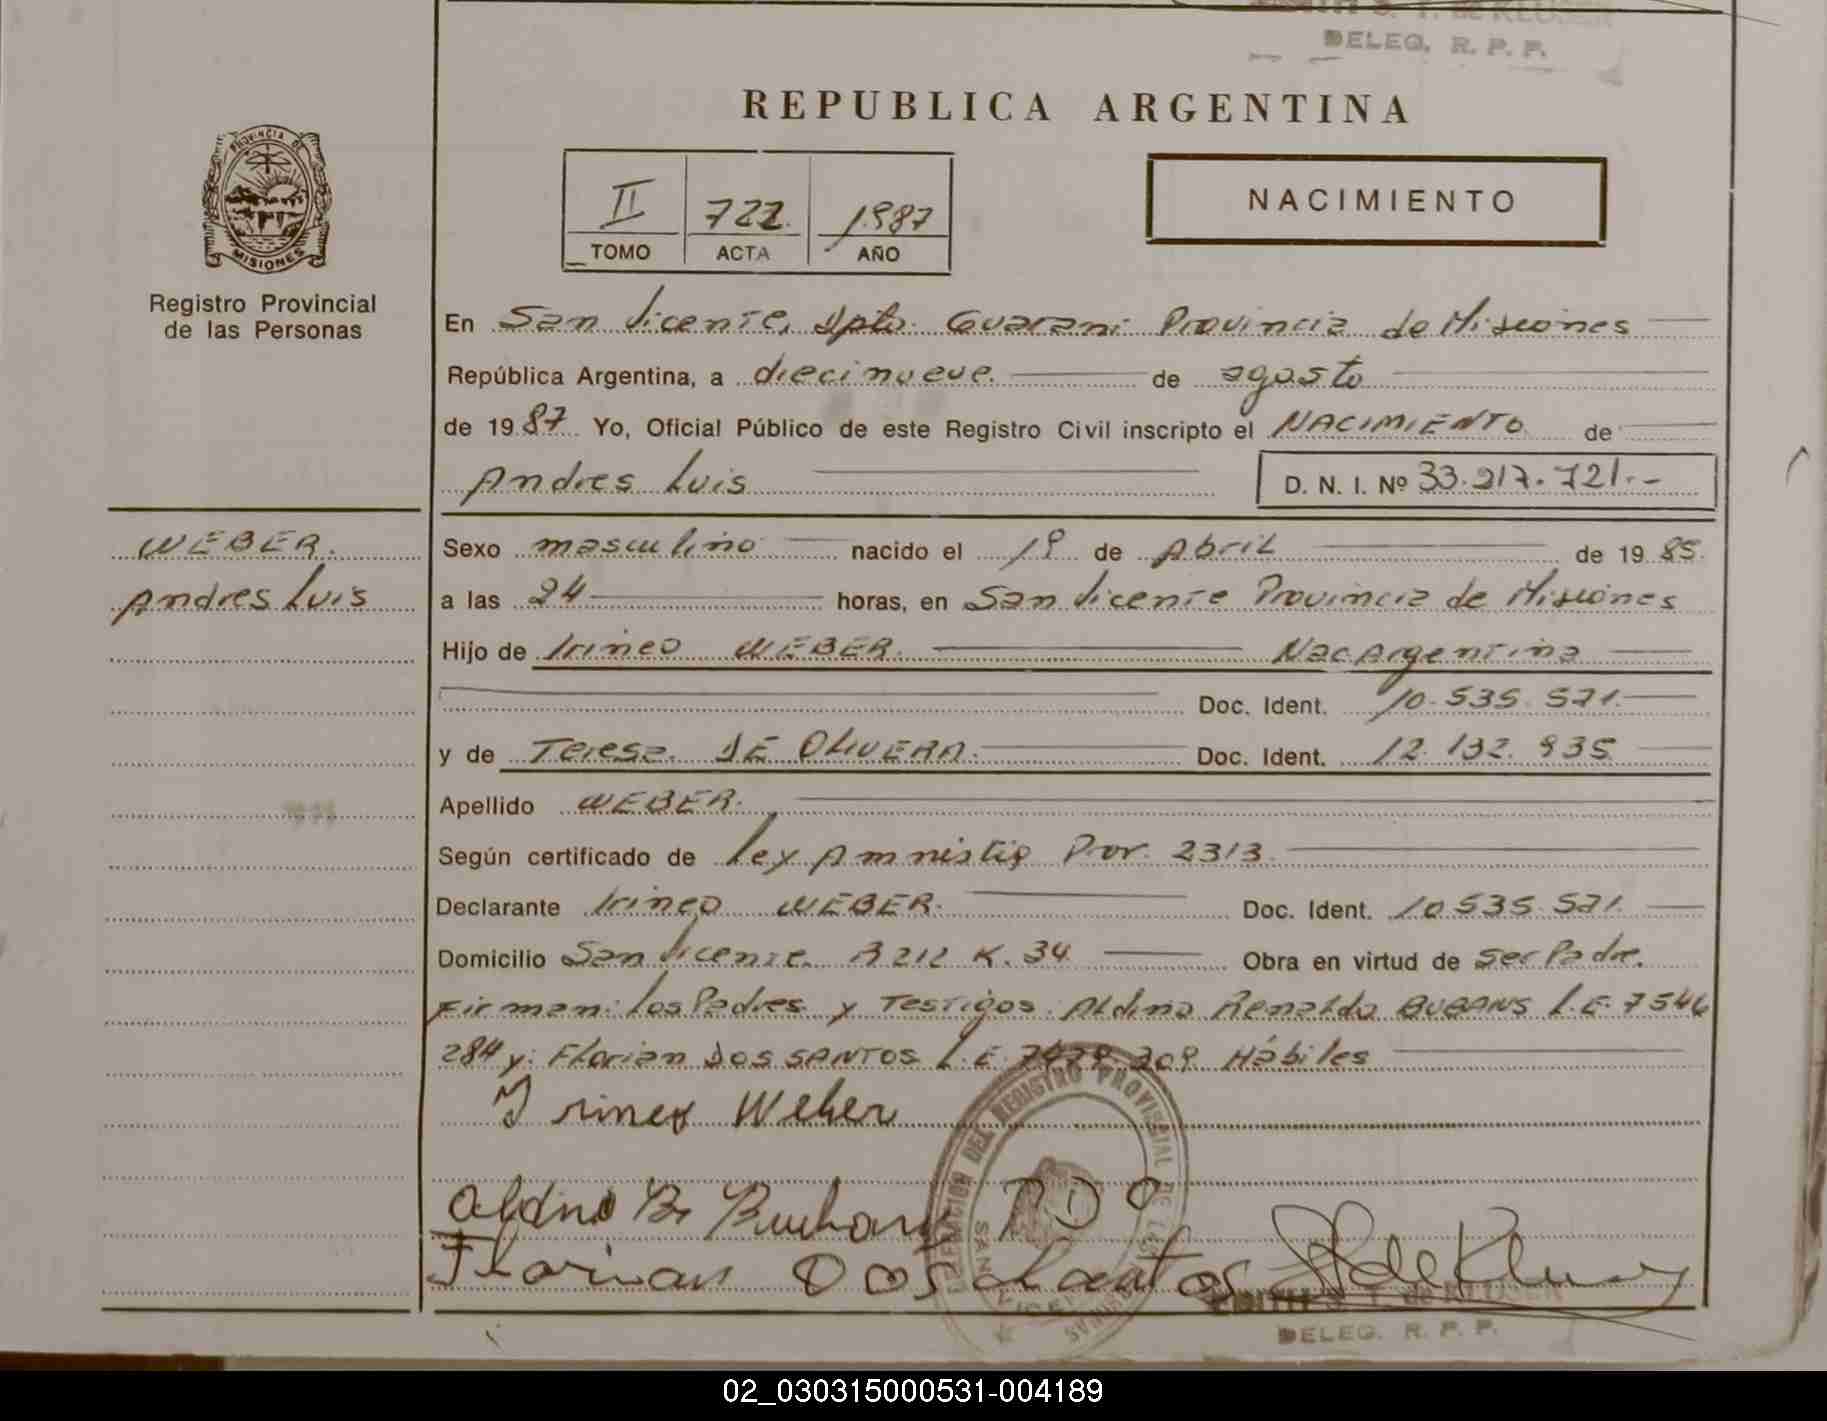 DELEG. R. P. P.
REPUBLICA ARGENTINA
PROVINCIA DE
MISIONES
Registro Provincial
de las Personas
II 722. 1.987
TOMO ACTA AÑO
NACIMIENTO
En San Vicente, Dpto. Guarani Provincia de Misiones
República Argentina, a diecinueve. de agosto
de 1987 Yo, Oficial Público de este Registro Civil inscripto el NACIMIENTO de
Andres Luis D. N. I. Nº 33.217.721.-
WEBER.
Andres Luis
Sexo masculino nacido el 19 de Abril de 1985.
a las 24 horas, en San Vicente Provincia de Misiones
Hijo de Irineo WEBER. Nac Argentina
Doc. Ident. 10.535.521.
y de Teresa. DE OLIVERA. Doc. Ident. 12.132.935
Apellido WEBER.
Según certificado de Ley Amnistia Prov. 2313.
Declarante Irineo WEBER. Doc. Ident. 10.535.521.
Domicilio San Vicente. R 212 K. 34 Obra en virtud de ser Padre.
Firman: los Padres y Testigos: Aldino Renaldo L.E. 7546
284 y: Florian DOS SANTOS L.E. 209 Hábiles
Irineo Weber
Aldino R.
Florian Dos Santos
DELEGACION DEL REGISTRO PROVINCIAL DE LAS PERSONAS
SAN VICENTE
EDITH S. T. de KLUSER
DELEG. R. P. P.
02_030315000531-004189